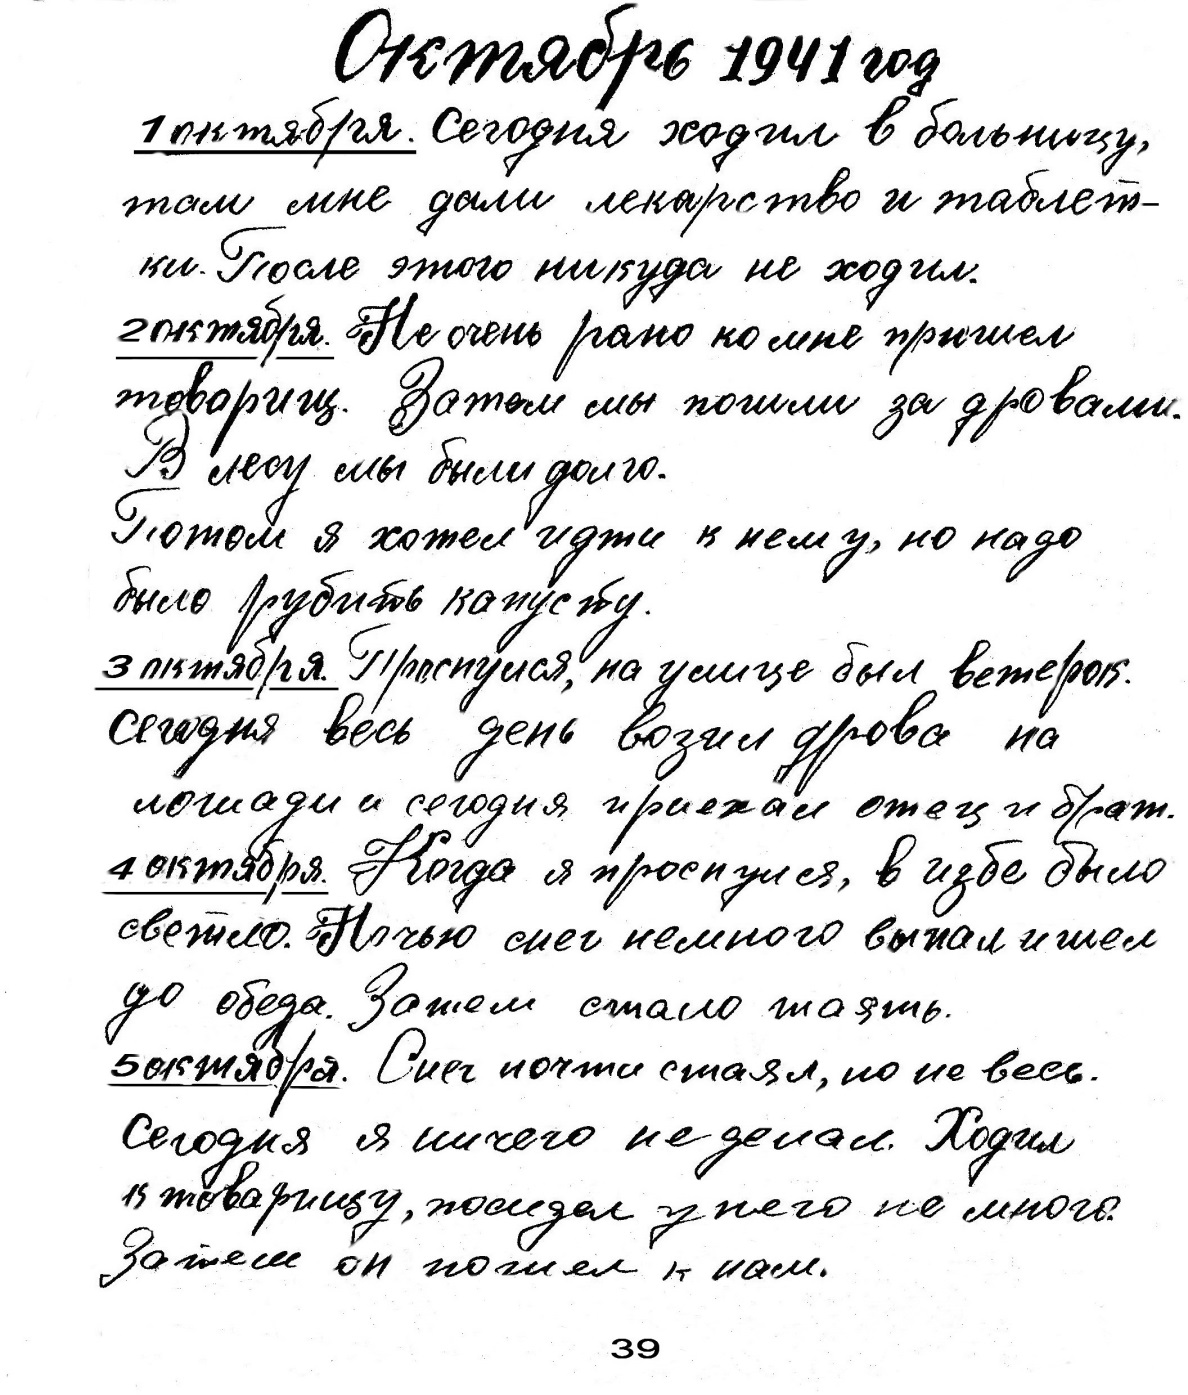 Октябрь 1941 год
1 октября. Сегодня ходил в больницу,
там мне дали лекарство и таблет-
ки. После этого никуда не ходил.
2 октября. Не очень рано ко мне пришел
товарищ. Затем мы пошли за дровами.
В лесу мы были долго.
Потом я хотел идти к нему, но надо
было рубить капусту.
3 октября. Проснулся, на улице был ветерок.
Сегодня весь день возил дрова на
лошади и сегодня приехал отец и брат.
4 октября. Когда я проснулся, в избе было
светло. Ночью снег немного выпал и шел
до обеда. Затем стало таять.
5 октября. Снег почти стаял, но не весь.
Сегодня я ничего не делал. Ходил
к товарищу, посидел у него не много.
Затем он пошел к нам.
39